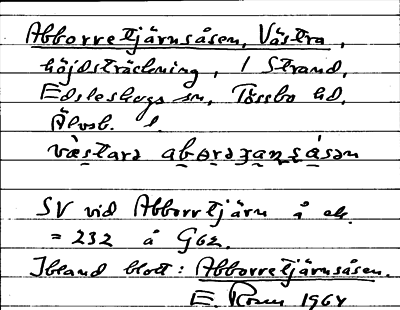 Abborretjärnsåsen, Västra,
höjdsträckning, i Strand,
Edsleskogs sn, Tössbo hd,
Älvsb. l.
SV vid Abborrtjärn å ek.
= 232 å G62.
Ibland blott: Abborretjärnsåsen.
E. Rosen 1964